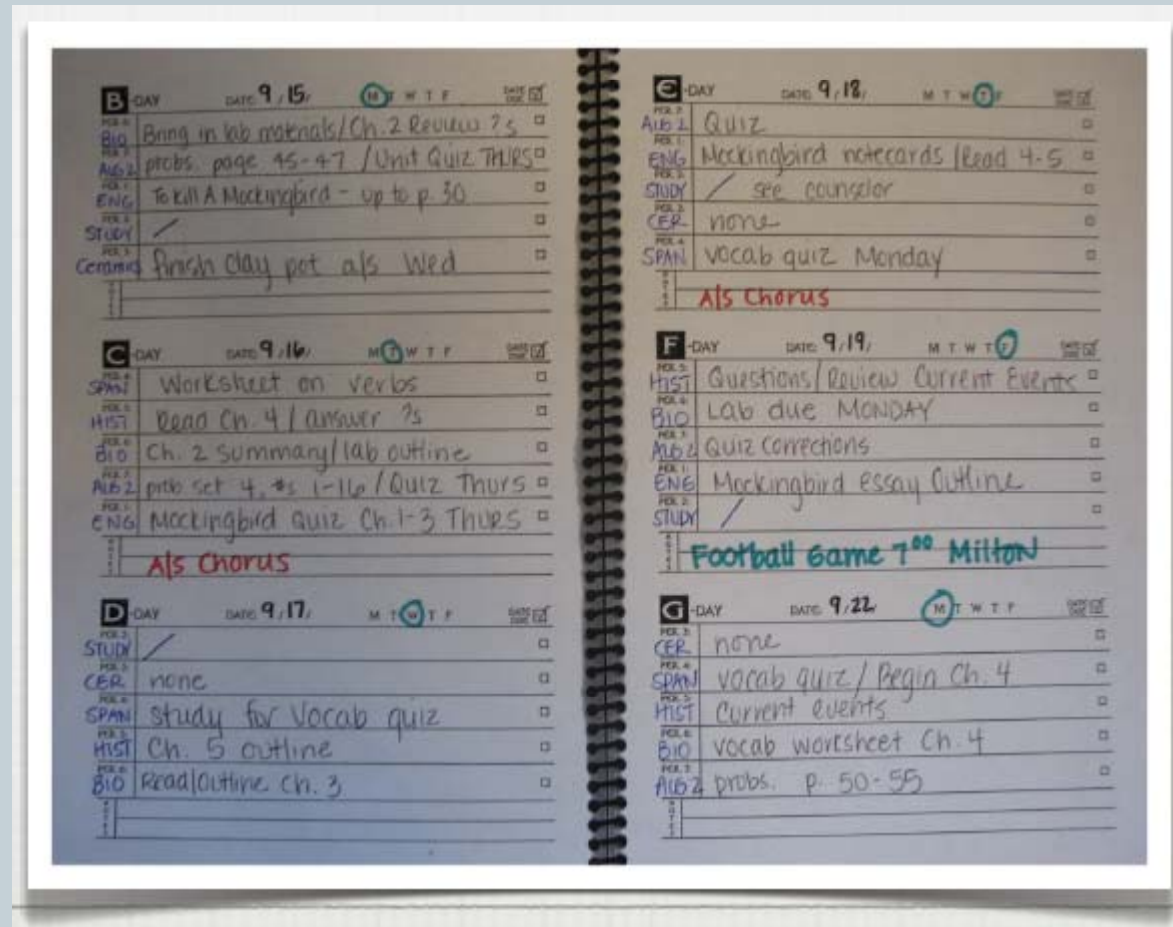 B-DAY DATE: 9/15/ M T W T F DATE DUE
PER. 6 BIO Bring in lab materials/Ch. 2 Review ?s
PER. 7 ALG 2 probs. page 45-47 / Unit Quiz THURS
PER. 1 ENG To Kill A Mockingbird - up to p. 30
PER. 2 STUDY /
PER. 3 Ceramics finish clay pot a/s Wed
NOTES
C-DAY DATE: 9/16/ M T W T F DATE DUE
PER. 4 SPAN Worksheet on verbs
PER. 5 HIST Read Ch. 4 / answer ?s
PER. 6 BIO Ch. 2 Summary/lab outline
PER. 7 ALG 2 prob set 4, #s 1-16 / Quiz Thurs
PER. 1 ENG Mockingbird Quiz Ch. 1-3 THURS
NOTES A/s Chorus
D-DAY DATE: 9/17/ M T W T F DATE DUE
PER. 2 STUDY /
PER. 3 CER none
PER. 4 SPAN Study for Vocab quiz
PER. 5 HIST Ch. 5 outline
PER. 6 BIO Read/Outline Ch. 3
NOTES
E-DAY DATE: 9/18/ M T W T F DATE DUE
PER. 7 ALG 2 Quiz
PER. 1 ENG Mockingbird notecards / Read 4-5
PER. 2 STUDY / see counselor
PER. 3 CER none
PER. 4 SPAN vocab quiz Monday
NOTES A/s Chorus
F-DAY DATE: 9/19/ M T W T F DATE DUE
PER. 5 HIST Questions/Review Current Events
PER. 6 BIO Lab due MONDAY
PER. 7 ALG 2 Quiz Corrections
PER. 1 ENG Mockingbird essay Outline
PER. 2 STUDY /
NOTES Football Game 7⁰⁰ Milton
G-DAY DATE: 9/22 M T W T F DATE DUE
PER. 3 CER none
PER. 4 SPAN vocab quiz / Begin Ch. 4
PER. 5 HIST Current events
PER. 6 BIO vocab worksheet Ch. 4
PER. 7 ALG 2 probs. p. 50-55
NOTES